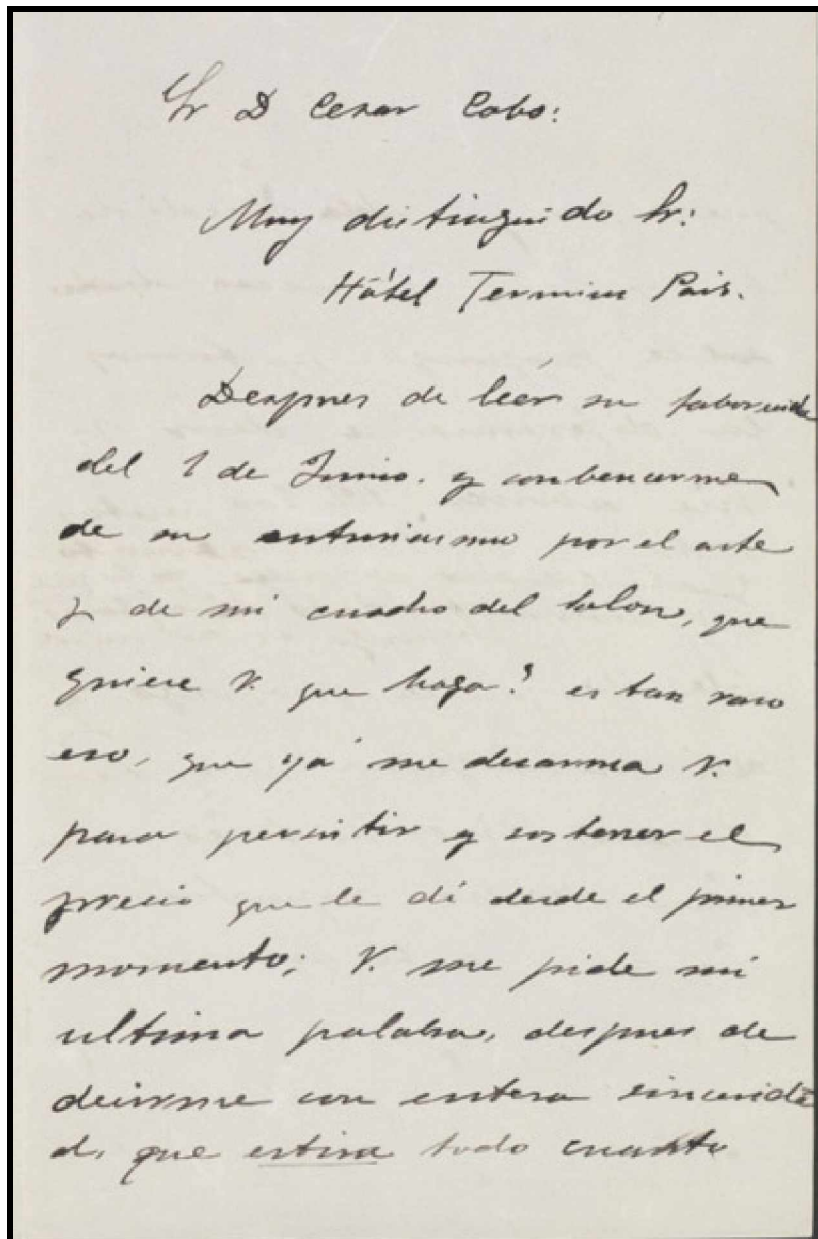 Sr D Cesar Cobo:
Muy distinguido Sr:
Hótel Terminus Paris.
Despues de leér su faborecida
del 1 de Junio. y conbencerme
de su entusiasmo por el arte
y de mi cuadro del Salon, que
quiere V. que haga? es tan raro
eso, que yá me desarma V.
para persistir y sostener el
precio que le dí desde el primer
momento; V. me pide mi
ultima palabra, despues de
decirme con entera sincerida
d, que estira todo cuanto